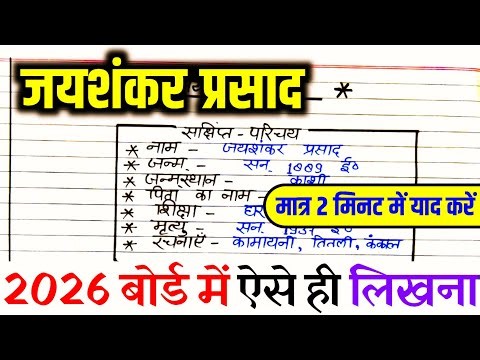 जयशंकर प्रसाद
*
संक्षिप्त - परिचय
* नाम - जयशंकर प्रसाद
* जन्म - सन् 1889 ई०
* जन्मस्थान - काशी
* पिता का नाम -
मात्र 2 मिनट में याद करें
* शिक्षा -
* मृत्यु - सन्
* रचनाएँ - कामायनी, तितली, कंकाल
2026 बोर्ड में ऐसे ही लिखना